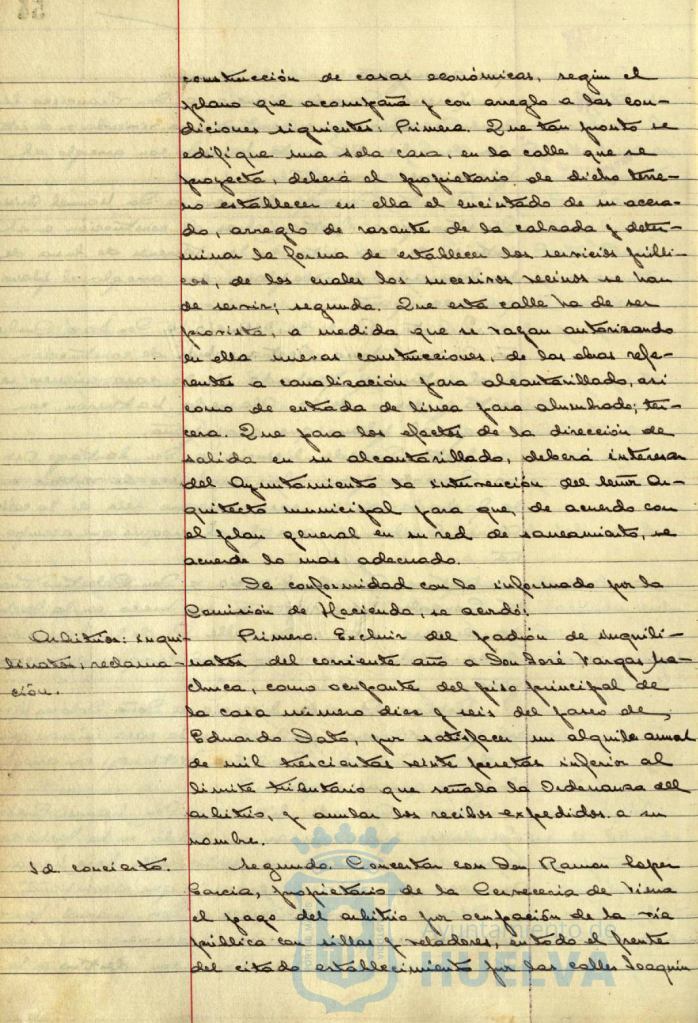 construcción de casas económicas, según el
plano que acompaña y con arreglo a las con-
diciones siguientes: Primera. Que tan pronto se
edifique una sola casa, en la calle que se
proyecta, deberá el propietario de dicho terre-
no establecer en ella el encintado de su acera-
do, arreglo de rasante de la calzada y deter-
minar la forma de establecer los servicios públi-
cos, de los cuales los sucesivos vecinos se han
de servir; segunda. Que esta calle ha de ser
provista, a medida que se vayan autorizando
en ella nuevas construcciones, de las obras refe-
rentes a canalización para alcantarillado, así
como de entrada de línea para alumbrado; ter-
cera. Que para los efectos de la dirección de
salida en su alcantarillado, deberá interesar
del Ayuntamiento la intervención del señor Ar-
quitecto municipal para que, de acuerdo con
el plan general en su red de saneamiento, se
acuerde lo mas adecuado.
De conformidad con lo informado por la
Comisión de Hacienda, se acordó:
Arbitrios: inqui-
linatos, reclama-
ción.
Primero. Excluir del padrón de inquili-
natos del corriente año a Don José Vargas Ma-
chuca, como ocupante del piso principal de
la casa número diez y seis del paseo de
Eduardo Dato, por satisfacer un alquiler anual
de mil trescientas veinte pesetas inferior al
límite tributario que señala la Ordenanza del
arbitrio, y anular los recibos expedidos a su
nombre.
Id. concierto.
Segundo. Concertar con Don Ramon Lopez
Garcia, propietario de la Cerveceria de Viena
el pago del arbitrio por ocupación de la vía
pública con sillas y veladores, en todo el frente
del citado establecimiento por las calles Joaquín
Ayuntamiento de
HUELVA